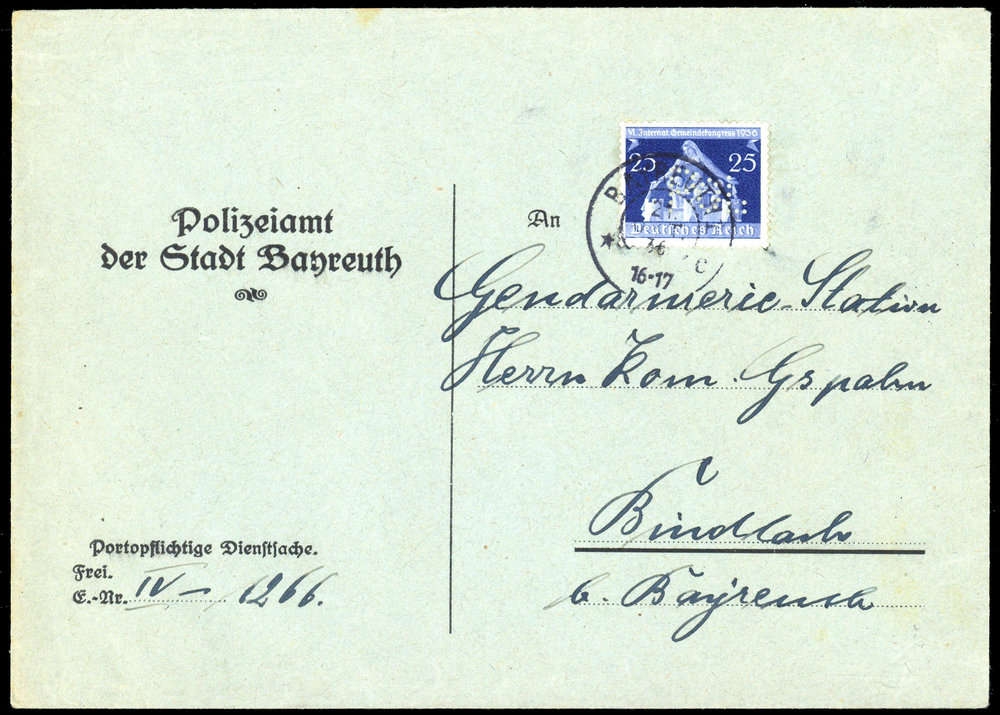 Polizeiamt
der Stadt Bayreuth
Portopflichtige Dienstsache.
Frei.
E.-Nr. IV – 1266.
VI. Internat. Gemeindekongress 1936
25 25
Deutsches Reich
36
16-17
An
Gendarmerie-Station
Herrn Kom.
Bindlach
b. Bayreuth